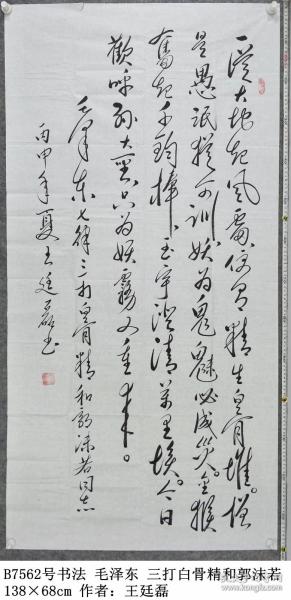 一從大地起風雷便有精生白骨堆僧
是愚氓猶可訓妖為鬼魅必成災金猴
奮起千鈞棒玉宇澄清萬里埃今日
歡呼孫大聖只為妖霧又重來。
毛澤東七律三打白骨精和郭沫若同志
丙申年夏王廷磊书
B7562号书法 毛泽东 三打白骨精和郭沫若
138×68cm 作者：王廷磊